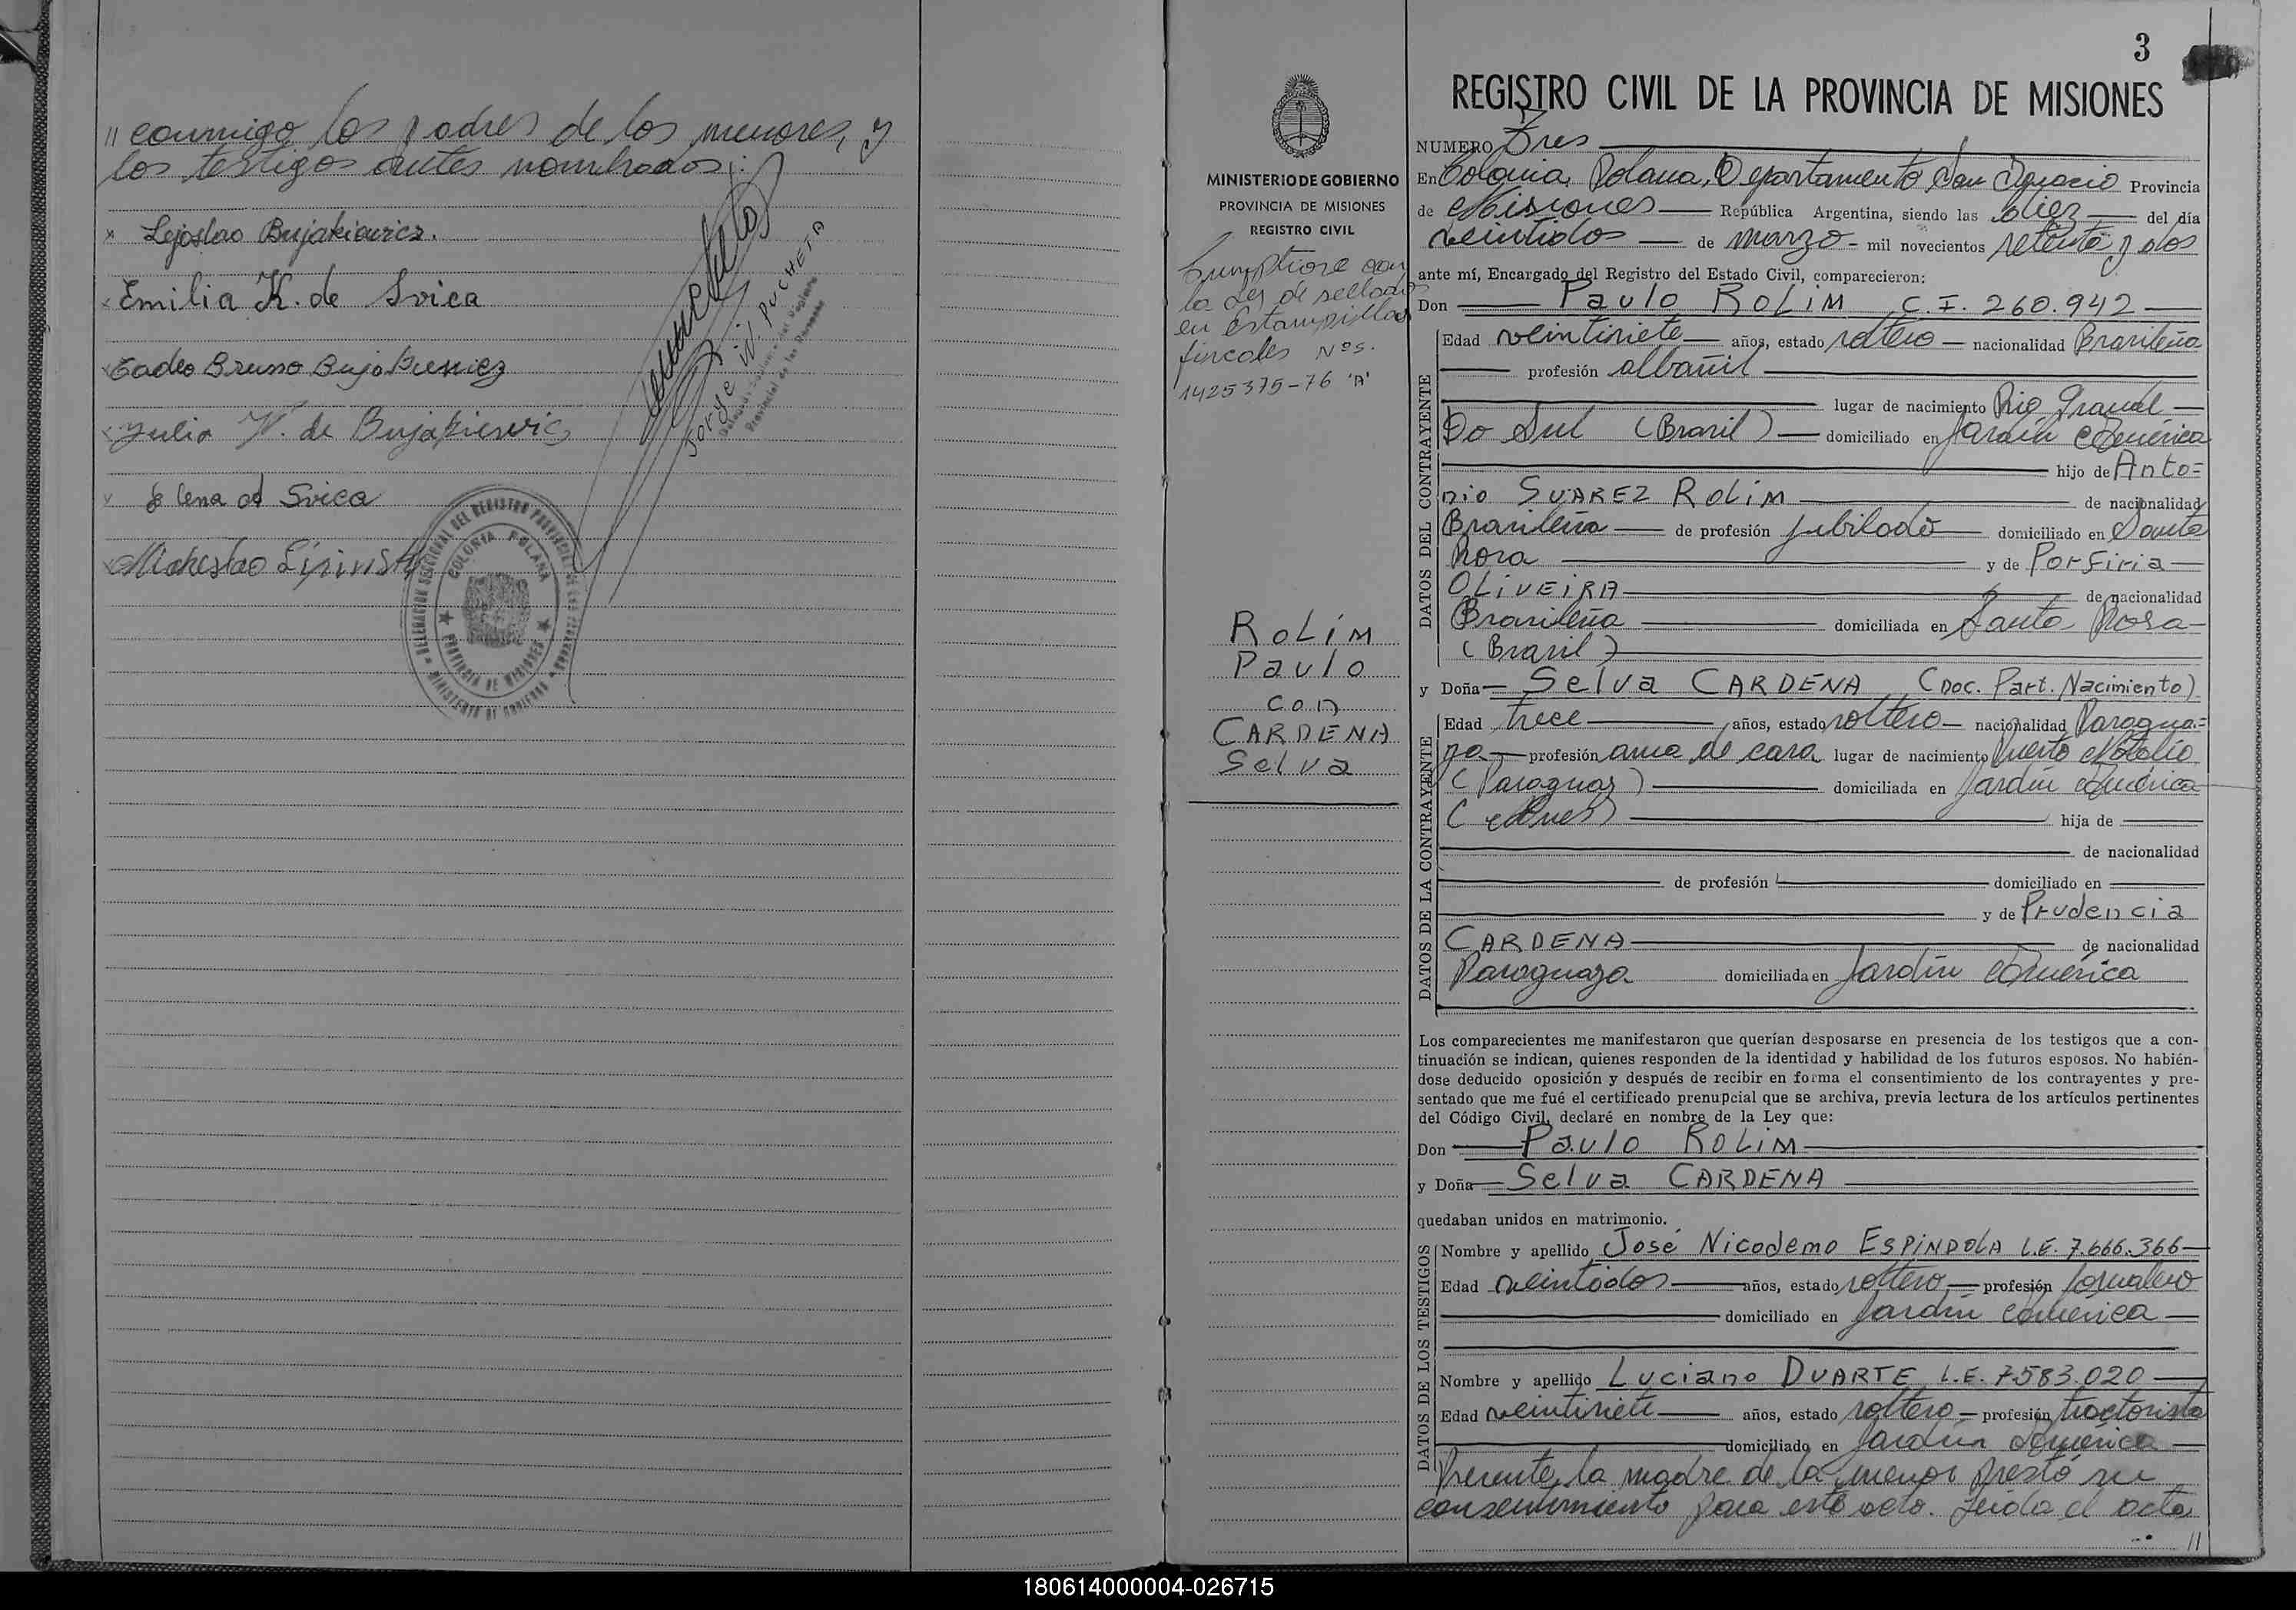 " conmigo los padres de los menores, y
los testigos antes nombrados:
x Lejoslao Bujakiewicz.
x Emilia K. de Svica
x Tadeo Bruno Bujakiewicz
x Julia W. de Bujakiewicz
x Elena de Svica
x Micheslao Lipinski
Jorge W. PUCHETA
DELEGACION SECCIONAL DEL REGISTRO PROVINCIAL DE LAS PERSONAS
COLONIA POLANA
PROVINCIA DE MISIONES
MINISTERIO DE GOBIERNO
3
MINISTERIO DE GOBIERNO
PROVINCIA DE MISIONES
REGISTRO CIVIL
Cumplióse con
la Ley de sellados
en Estampillas
fiscales Nºs.
1425375-76 'A'
ROLIM
Paulo
con
CARDENA
Selva
REGISTRO CIVIL DE LA PROVINCIA DE MISIONES
NUMERO Tres
En Colonia Polana, Departamento San Ignacio Provincia
de Misiones República Argentina, siendo las diez del día
veintidos de marzo mil novecientos setenta y dos
ante mí, Encargado del Registro del Estado Civil, comparecieron:
Don Paulo ROLIM C.I. 260.942
DATOS DEL CONTRAYENTE
Edad veintisiete años, estado soltero nacionalidad Brasileña
profesión albañil
lugar de nacimiento Rio Grande
Do Sul (Brasil) domiciliado en Jardín América
hijo de Anto=
nio SUAREZ ROLIM de nacionalidad
Brasileña de profesión jubilado domiciliado en Santa
Rosa y de Porfiria
OLIVEIRA de nacionalidad
Brasileña domiciliada en Santa Rosa
(Brasil)
y Doña Selva CARDENA (Doc. Part. Nacimiento)
DATOS DE LA CONTRAYENTE
Edad trece años, estado soltero nacionalidad Paragua=
ya profesión ama de casa lugar de nacimiento Puerto Natalio
(Paraguay) domiciliada en Jardín América
(Mnes) hija de
de nacionalidad
de profesión domiciliado en
y de Prudencia
CARDENA de nacionalidad
Paraguaya domiciliada en Jardín América
Los comparecientes me manifestaron que querían desposarse en presencia de los testigos que a con-
tinuación se indican, quienes responden de la identidad y habilidad de los futuros esposos. No habién-
dose deducido oposición y después de recibir en forma el consentimiento de los contrayentes y pre-
sentado que me fué el certificado prenupcial que se archiva, previa lectura de los artículos pertinentes
del Código Civil, declaré en nombre de la Ley que:
Don Paulo ROLIM
y Doña Selva CARDENA
quedaban unidos en matrimonio.
DATOS DE LOS TESTIGOS
Nombre y apellido José Nicodemo ESPINDOLA L.E. 7.666.366
Edad veintidos años, estado soltero profesión Jornalero
domiciliado en Jardín América
Nombre y apellido Luciano DUARTE L.E. 7583.020
Edad veintisiete años, estado soltero profesión tractorista
domiciliado en Jardín América
Presente la madre de la menor prestó su
consentimiento para este acto. Leída el acta
//
180614000004-026715